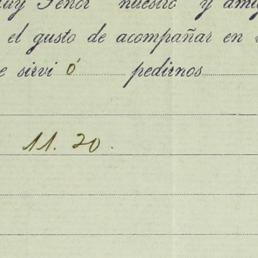 Señor nuestro y
el gusto de acompañar en
sirvió pedirnos
11. 20.